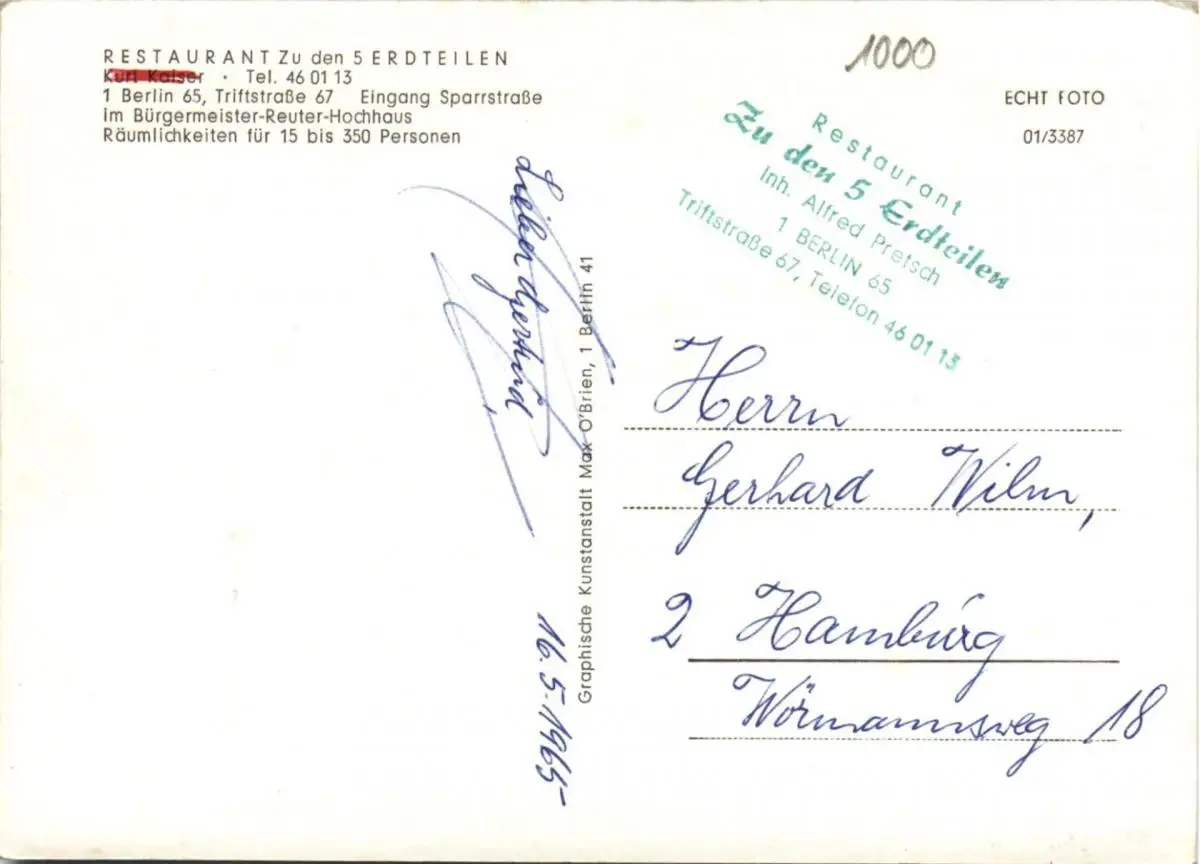 RESTAURANT Zu den 5 ERDTEILEN
Kurt Kaiser · Tel. 46 01 13
1 Berlin 65, Triftstraße 67 Eingang Sparrstraße
Im Bürgermeister-Reuter-Hochhaus
Räumlichkeiten für 15 bis 350 Personen
1000
ECHT FOTO
01/3387
Restaurant
Zu den 5 Erdteilen
Inh. Alfred Pretsch
1 BERLIN 65
Triftstraße 67, Telefon 46 01 13
Lieber
16.5.1965-
Graphische Kunstanstalt Max O'Brien, 1 Berlin 41
Herrn
Gerhard Wilm,
2 Hamburg
Wörmannsweg 18